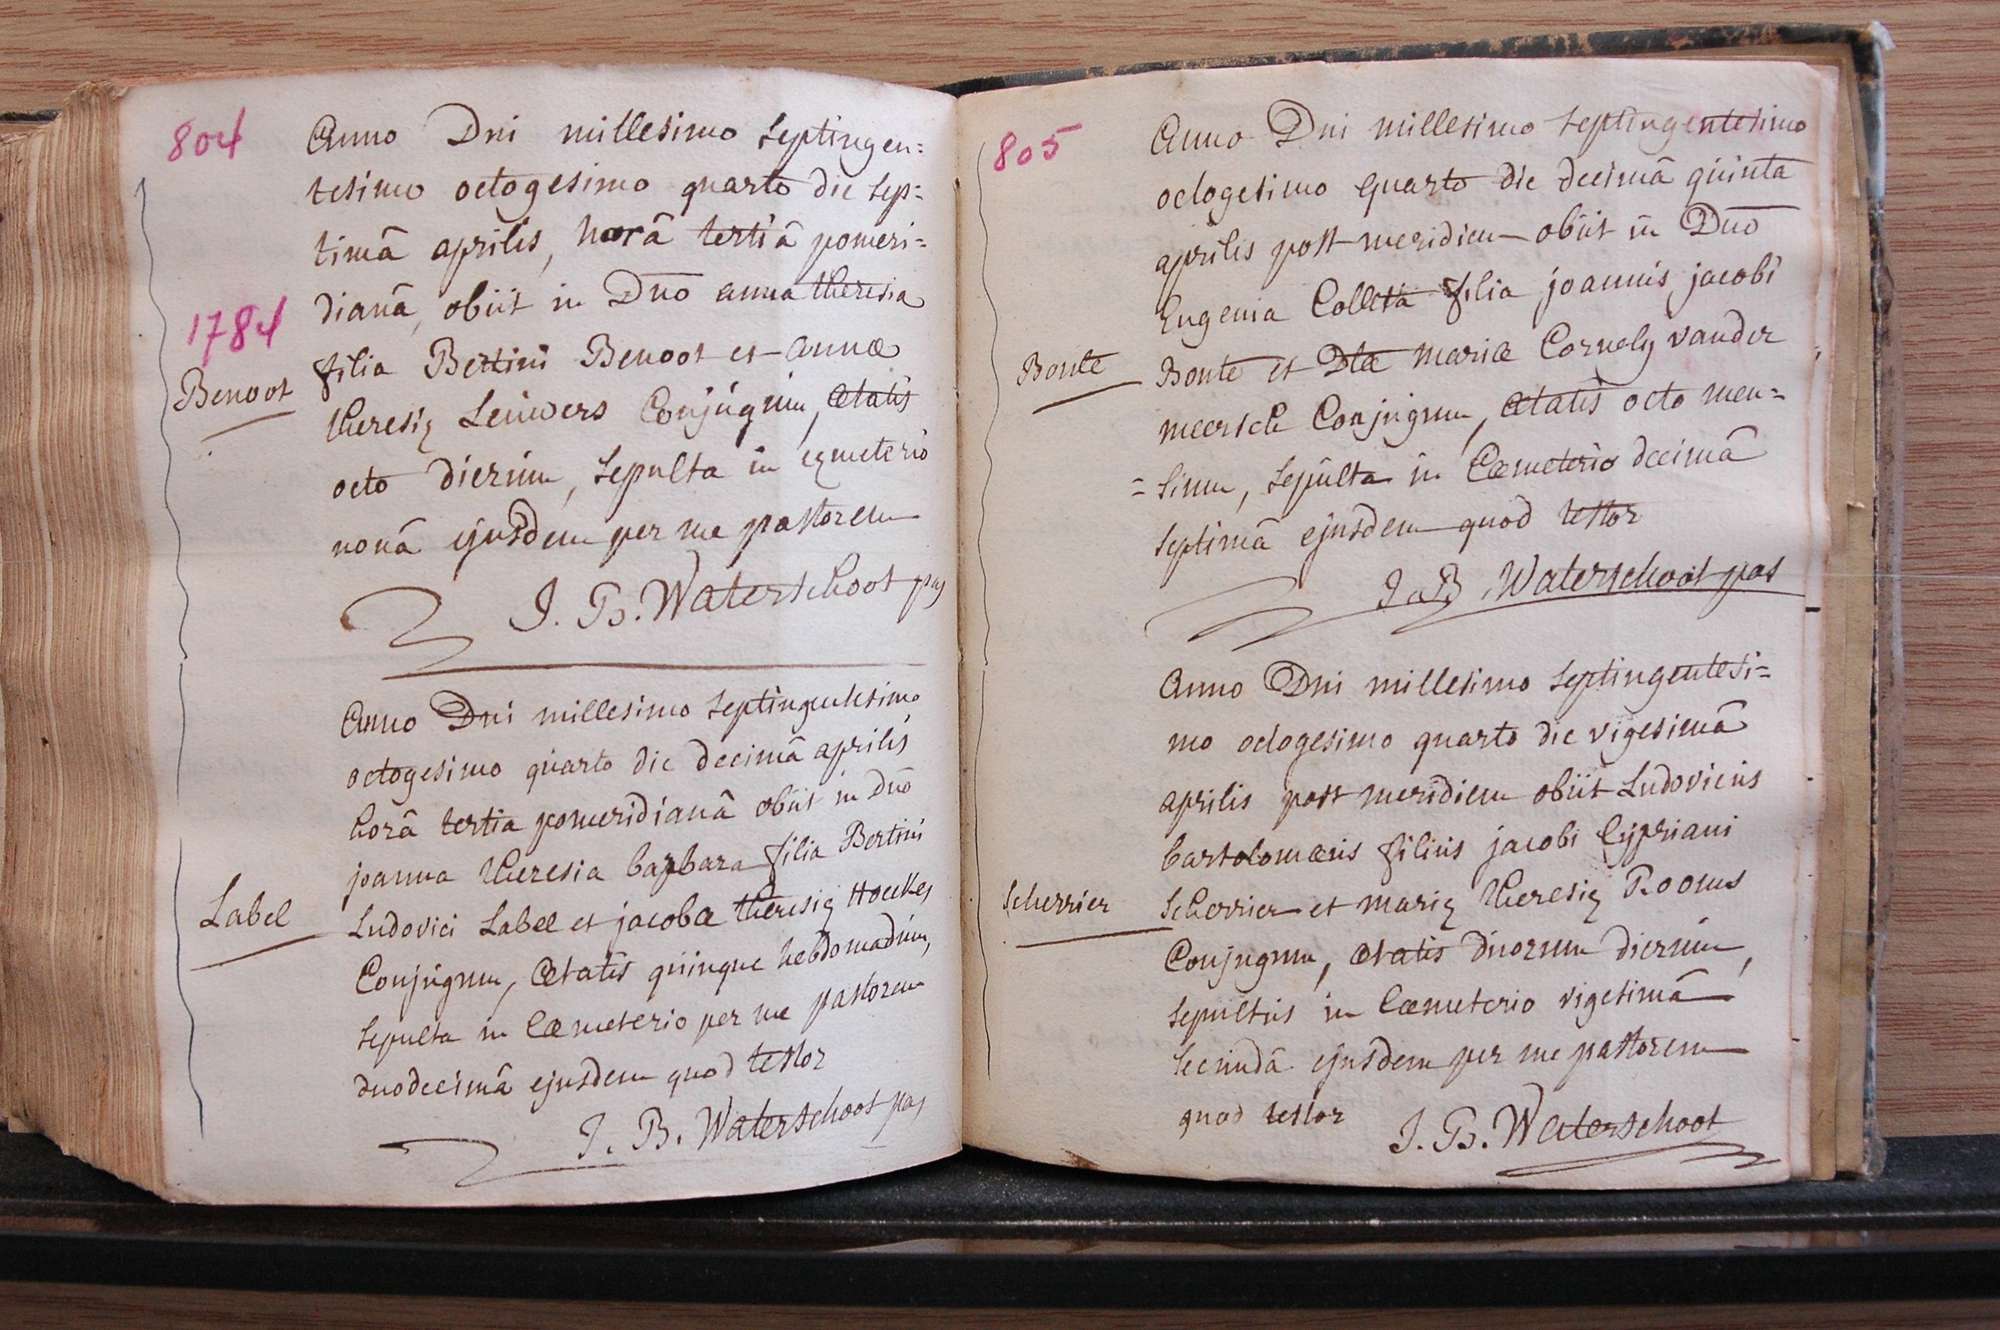 804
Anno Dni millesimo septingen=
tesimo octogesimo quarto die sep=
timâ aprilis, horâ tertiâ pomeri=
dianâ, obiit in Dno anna theresia
1784
filia Bertini Benoot et annæ
Benoot
theresiæ Leuwers Conjugum, ætatis
octo dierum, sepulta in cæmeterio
nonâ ejusdem per me pastorem
J. B. Waterschoot pas
Anno Dni millesimo septingentesimo
octogesimo quarto die decimâ aprilis
horâ tertia pomeridianâ obiit in Dno
joanna theresia barbara filia Bertini
Label
Ludovici Label et jacobæ theresiæ
Conjugum, ætatis quinque hebdomadum,
sepulta in Cæmeterio per me pastorem
duodecimâ ejusdem quod testor
J. B. Waterschoot pas
805
Anno Dni millesimo septingentesimo
octogesimo quarto die decimâ quinta
aprilis post meridiem obiit in Dno
Eugenia Colleta filia joannis jacobi
Bonte
Bonte et Dlæ mariæ Cornely vander
meersch Conjugum, ætatis octo men=
=sium, sepulta in Cæmeterio decimâ
septimâ ejusdem quod testor
J. B. Waterschoot pas
Anno Dni millesimo septingentesi=
mo octogesimo quarto die vigesimâ
aprilis post meridiem obiit Ludovicus
bartolomæus filius jacobi Cypriani
Scherrier
Scherrier et mariæ theresiæ Rooms
Conjugum, ætatis duorum dierum,
sepultus in Cæmeterio vigesimâ
secundâ ejusdem per me pastorem
quod testor
J. B. Waterschoot